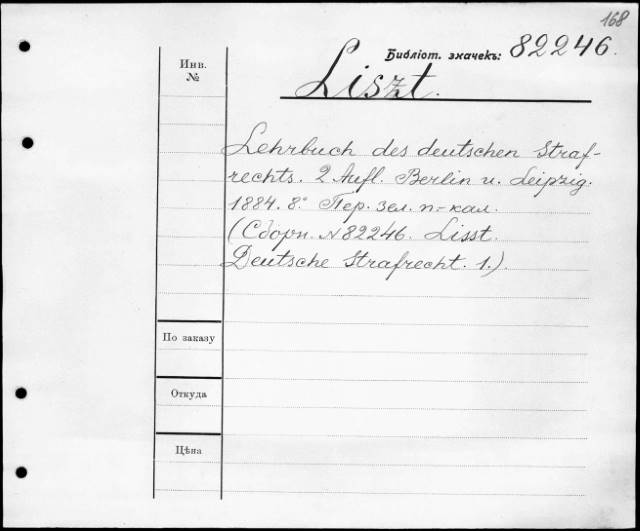 168
Библіот. значекъ: 82246.
Liszt.
Инв.
№
Lehrbuch des deutschen Straf-
rechts. 2 Aufl. Berlin u. Leipzig.
1884. 8.° Пер. зел. п-кал.
(Сборн. № 82246. Lisst.
Deutsche Strafrecht. 1.).
По заказу
Откуда
Цѣна